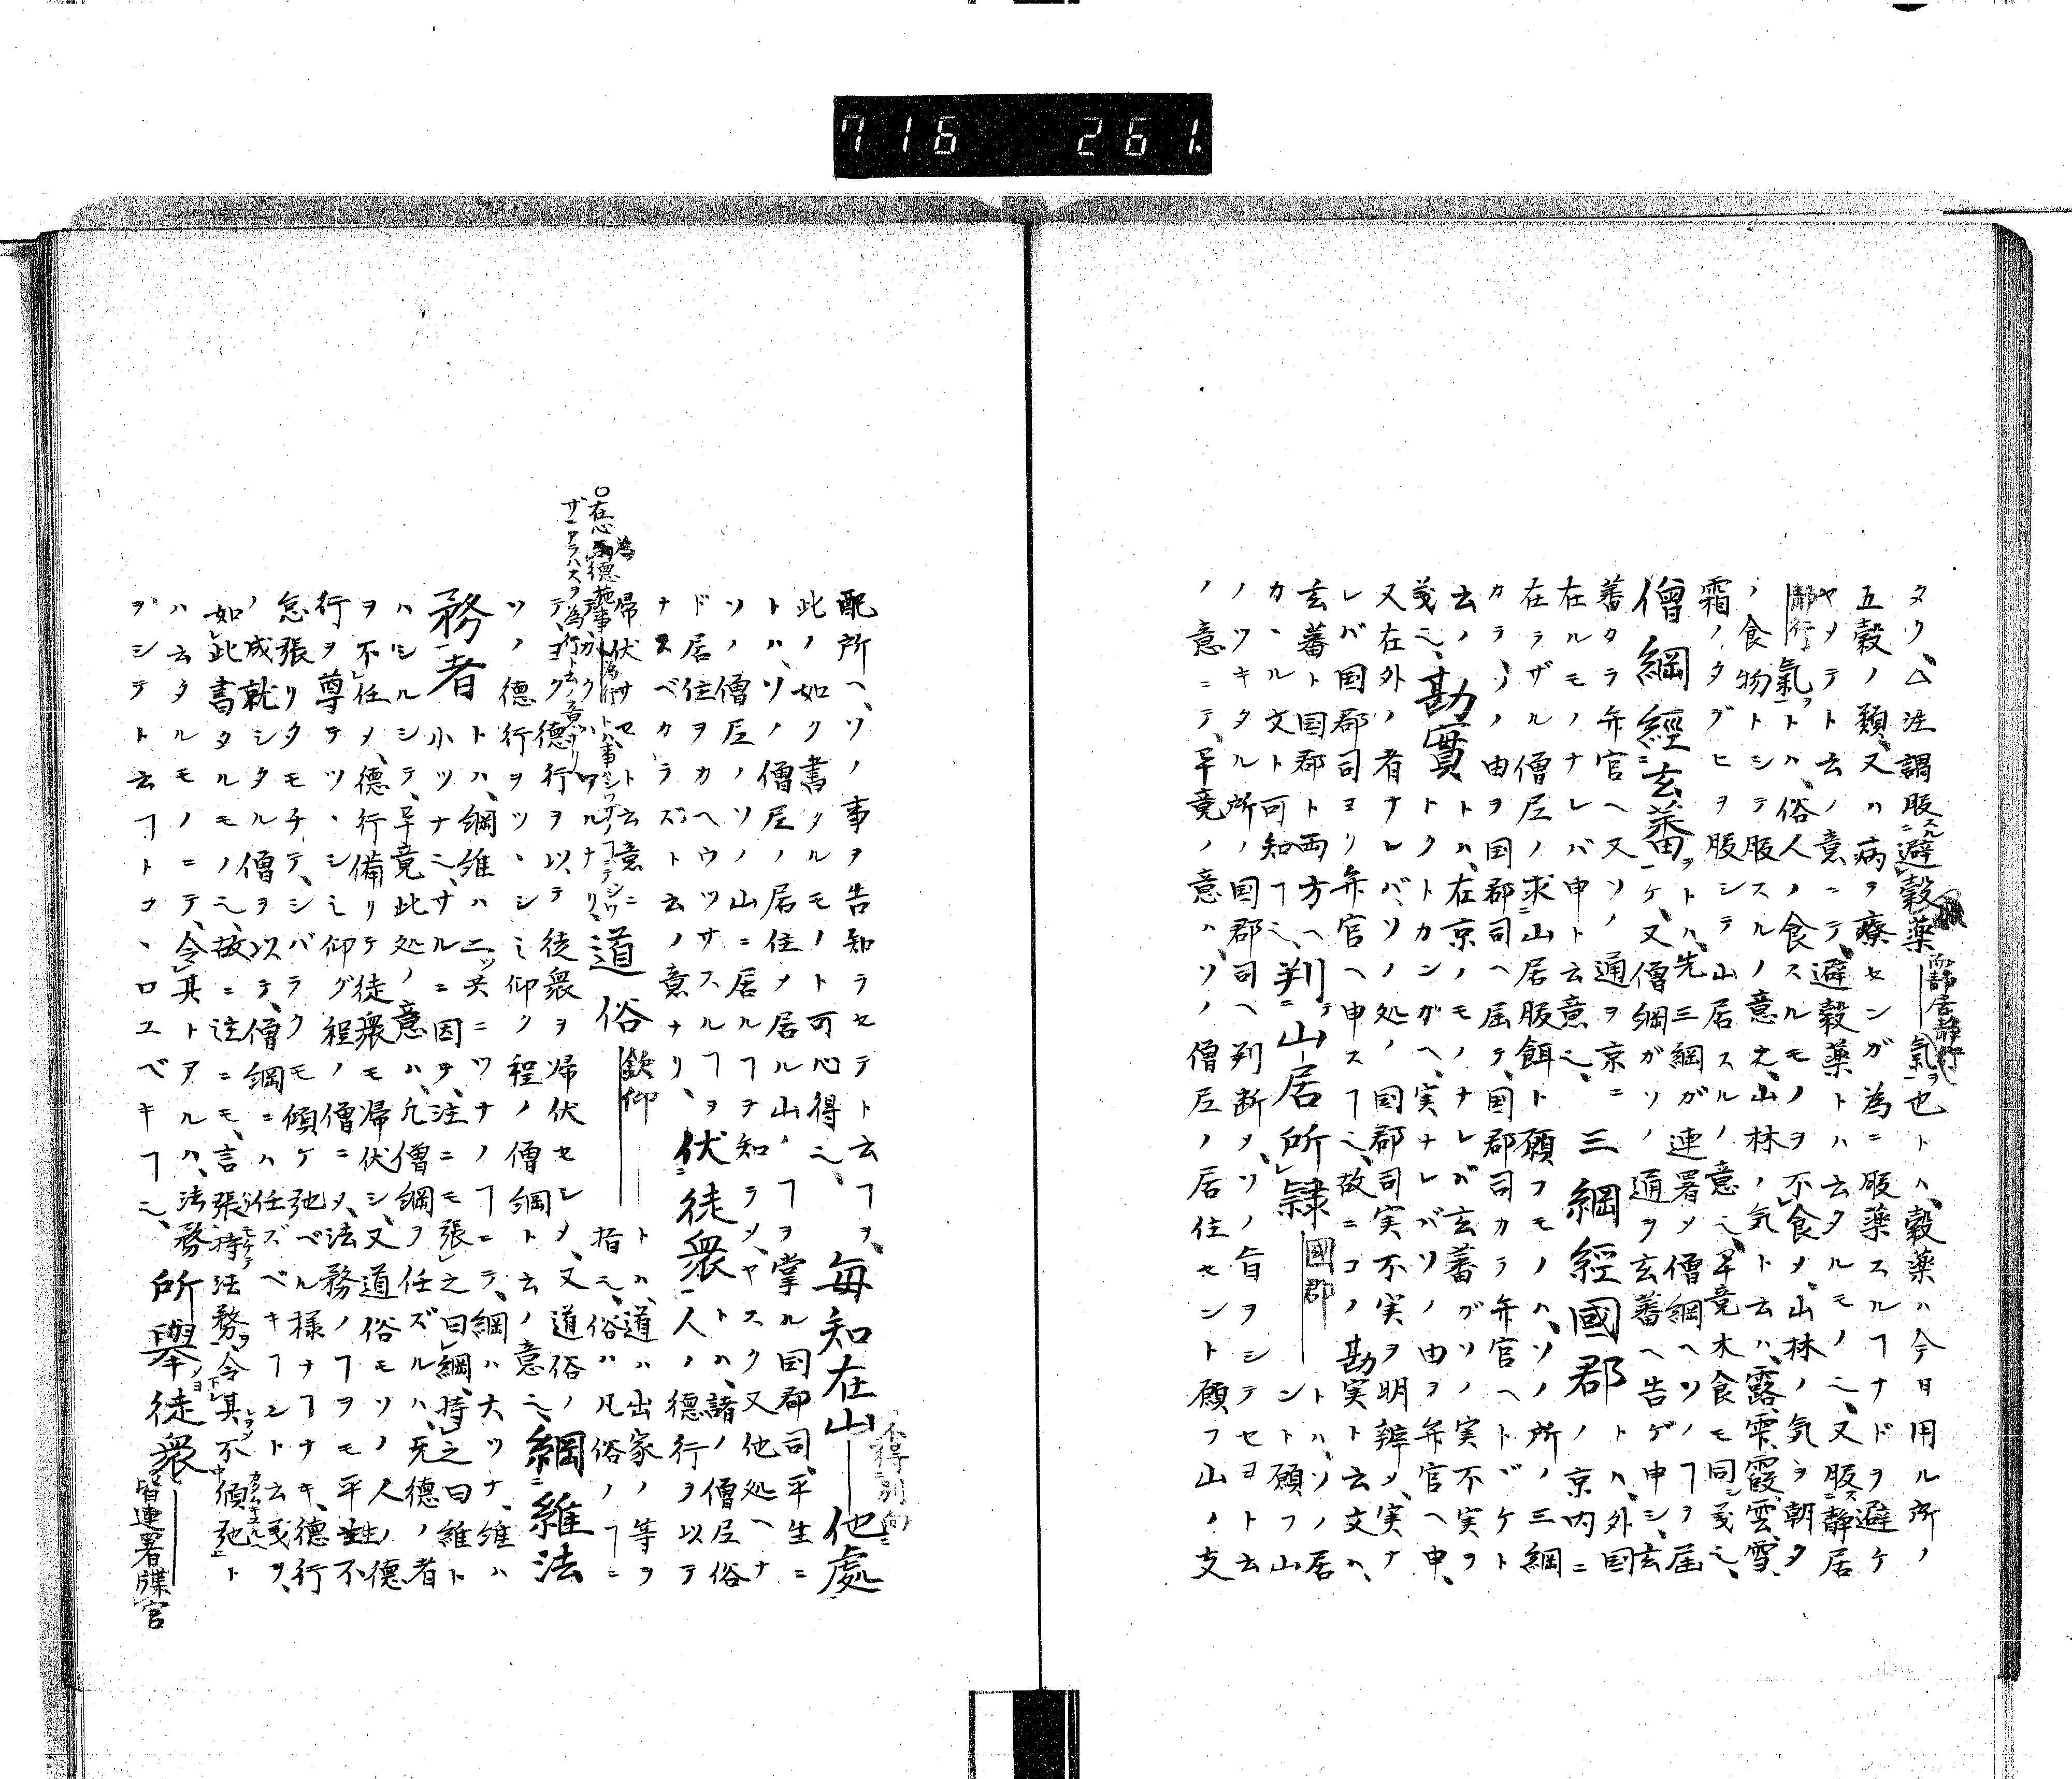 716 261.
タリ、△注謂服スルニ避穀薬而静居静行氣ヲ也トハ、穀薬ハ今日用ル所ノ
五穀ノ類、又ハ病ヲ療センガ為ニ服薬スルヿナドヲ避ケ
ヤメテト云ノ意ニテ、避穀薬トハ云タルモノ也、又服ス静居
静行氣ヲトハ、俗人ノ食スルモノヲ不食メ、山林ノ気ヲ朝夕
ノ食物トシテ服スルノ意也、山林ノ気ト云ハ、露、雫、霞、雲、雪、
霜ノタグヒヲ服シテ山居スルノ意也、畢竟木食モ同シ義也、
僧綱經玄蕃ヲトハ、先三綱ガ連署メ僧綱ヘソノヿヲ届
ケ、又僧綱ガソノ通ヲ玄蕃ヘ告ゲ申シ、玄
蕃カラ弁官ヘ又ソノ通ヲ京ニ 三綱經國郡 トハ、外国
在ルモノナレバ申ト云意也、ノ京内ニ
在ラザル僧尼ノ求山居服餌ト願フモノハ、ソノ所ノ三綱
カラ、ソノ由ヲ国郡司ヘ届テ、国郡司カラ弁官ヘトヾケト
云ノ 勘實 トハ、在京ノモノナレバ玄蕃ガソノ実不実ヲ
義也、トクトカンガヘ、実ナレバソノ由ヲ弁官ヘ申、
又在外ノ者ナレバソノ処ノ国郡司実不実ヲ明辨メ、実ナ
レバ国郡司ヨリ弁官ヘ申スヿ也、故ニコノ勘実ト云文ハ、
玄蕃ト国郡ト両方ヘ 判山居所隷國郡 トハ、ソノ居
カヽル文ト可知ヿ也、ント願フ山
ノツキタル所ノ国郡司ヘ判断メ、ソノ旨ヲシテセヨト云
ノ意ニテ、畢竟ノ意ハ、ソノ僧尼ノ居住セント願フ山ノ支
配所ヘ、ソノ事ヲ告知ラセテト云ヿヲ、毎知在山不得別向ニ他處
此ノ如ク書タルモノト可心得也、
トハ、ソノ僧尼ノ居住メ居ル山ノヿヲ掌ル国郡司、平生ニ
ソノ僧尼ノソノ山ニ居ルヿヲ知ラメ、ヤスク又他処ヘナ
ド居住ヲカヘウツサスルヿヲ 伏徒衆 トハ、諸ノ僧尼俗
ナスベカラズト云ノ意ナリ、人ノ德行ヲ以テ
帰伏サセト云意ニ 道俗欽仰 トハ、道ハ出家ノ等ヲ
指也、俗ハ凡俗ノヿニ
テ、ヨク德行ヲ以テ徒衆ヲ帰伏セシメ、又道俗ノ
ソノ德行ヲツヽシミ仰クノ程ノ僧綱ト云ノ意也、綱維法
務者 トハ、綱維ハ二ツ共ニツナノヿニテ、綱ハ大ツナ、維ハ
小ツナ也、サルニ因ヲ、注ニモ張之曰綱、持之曰維ト
ハシルシテ、畢竟此処ノ意ハ、凡僧綱ヲ任ズルハ、无德ノ者
ヲ不任メ、德行備リテ徒衆モ帰伏シ、又道俗モソノ人ノ德
行ヲ尊テツヽシミ仰グ程ノ僧ニメ、法務ノヿヲモ平生不
怠張リタモチテ、シバラクモ傾ケ弛ベル様ナヿナキ、德行
ノ成就シタル僧ヲ以テ、僧綱ニハ任ズベキヿ也ト云義ヲ、
如此書タルモノ也、故ニ注ニモ、言張持法務ヲ、令其不傾弛ト
ハ云タルモノニテ、令其トアルハ、法務 所擧徒衆皆連署牒官
ヲシテト云ヿトコヽロユベキヿ也、